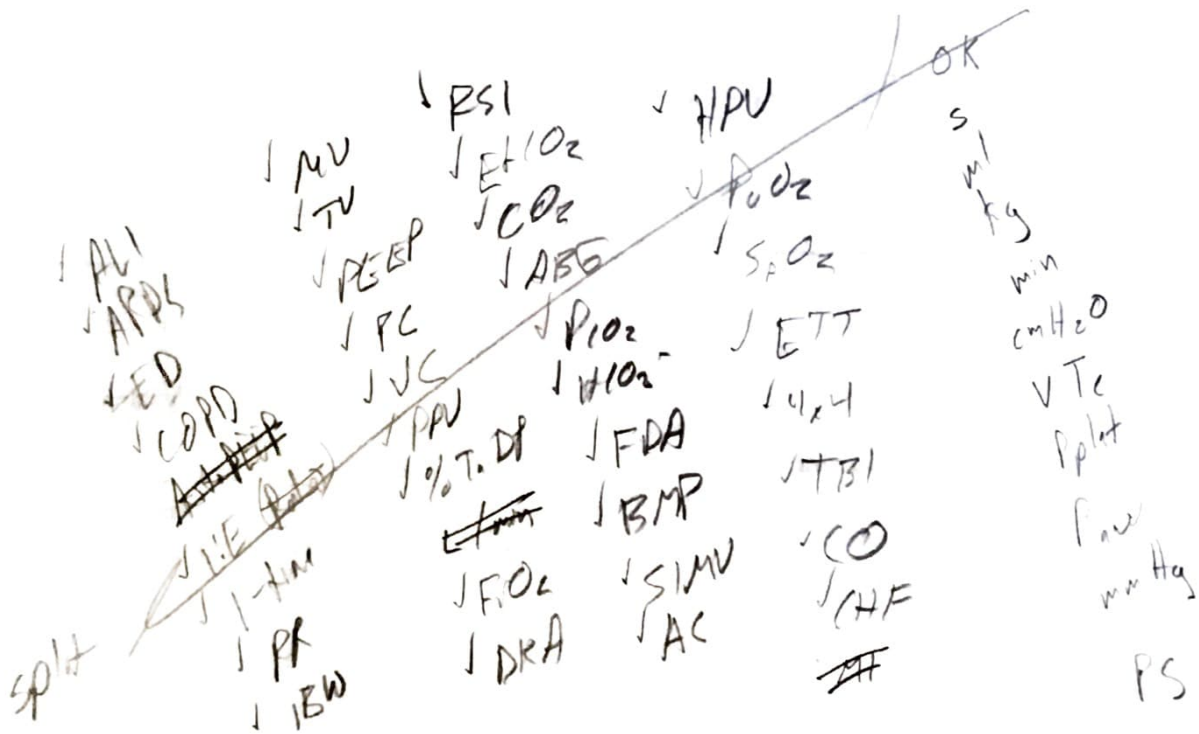 ALI
ARDS
ED
COPD
I:E
I-time
PR
IBW
MV
TV
PEEP
PC
VC
PPV
%ToDP
FiO2
DKA
RSI
EtCO2
CO2
ABG
PiO2
FDA
BMP
SIMV
AC
HPV
PaO2
SpO2
ETT
4x4
TBI
CO
CHF
OK
s
ml
kg
min
cmH2O
VTe
Pplat
Paw
mmHg
PS
split